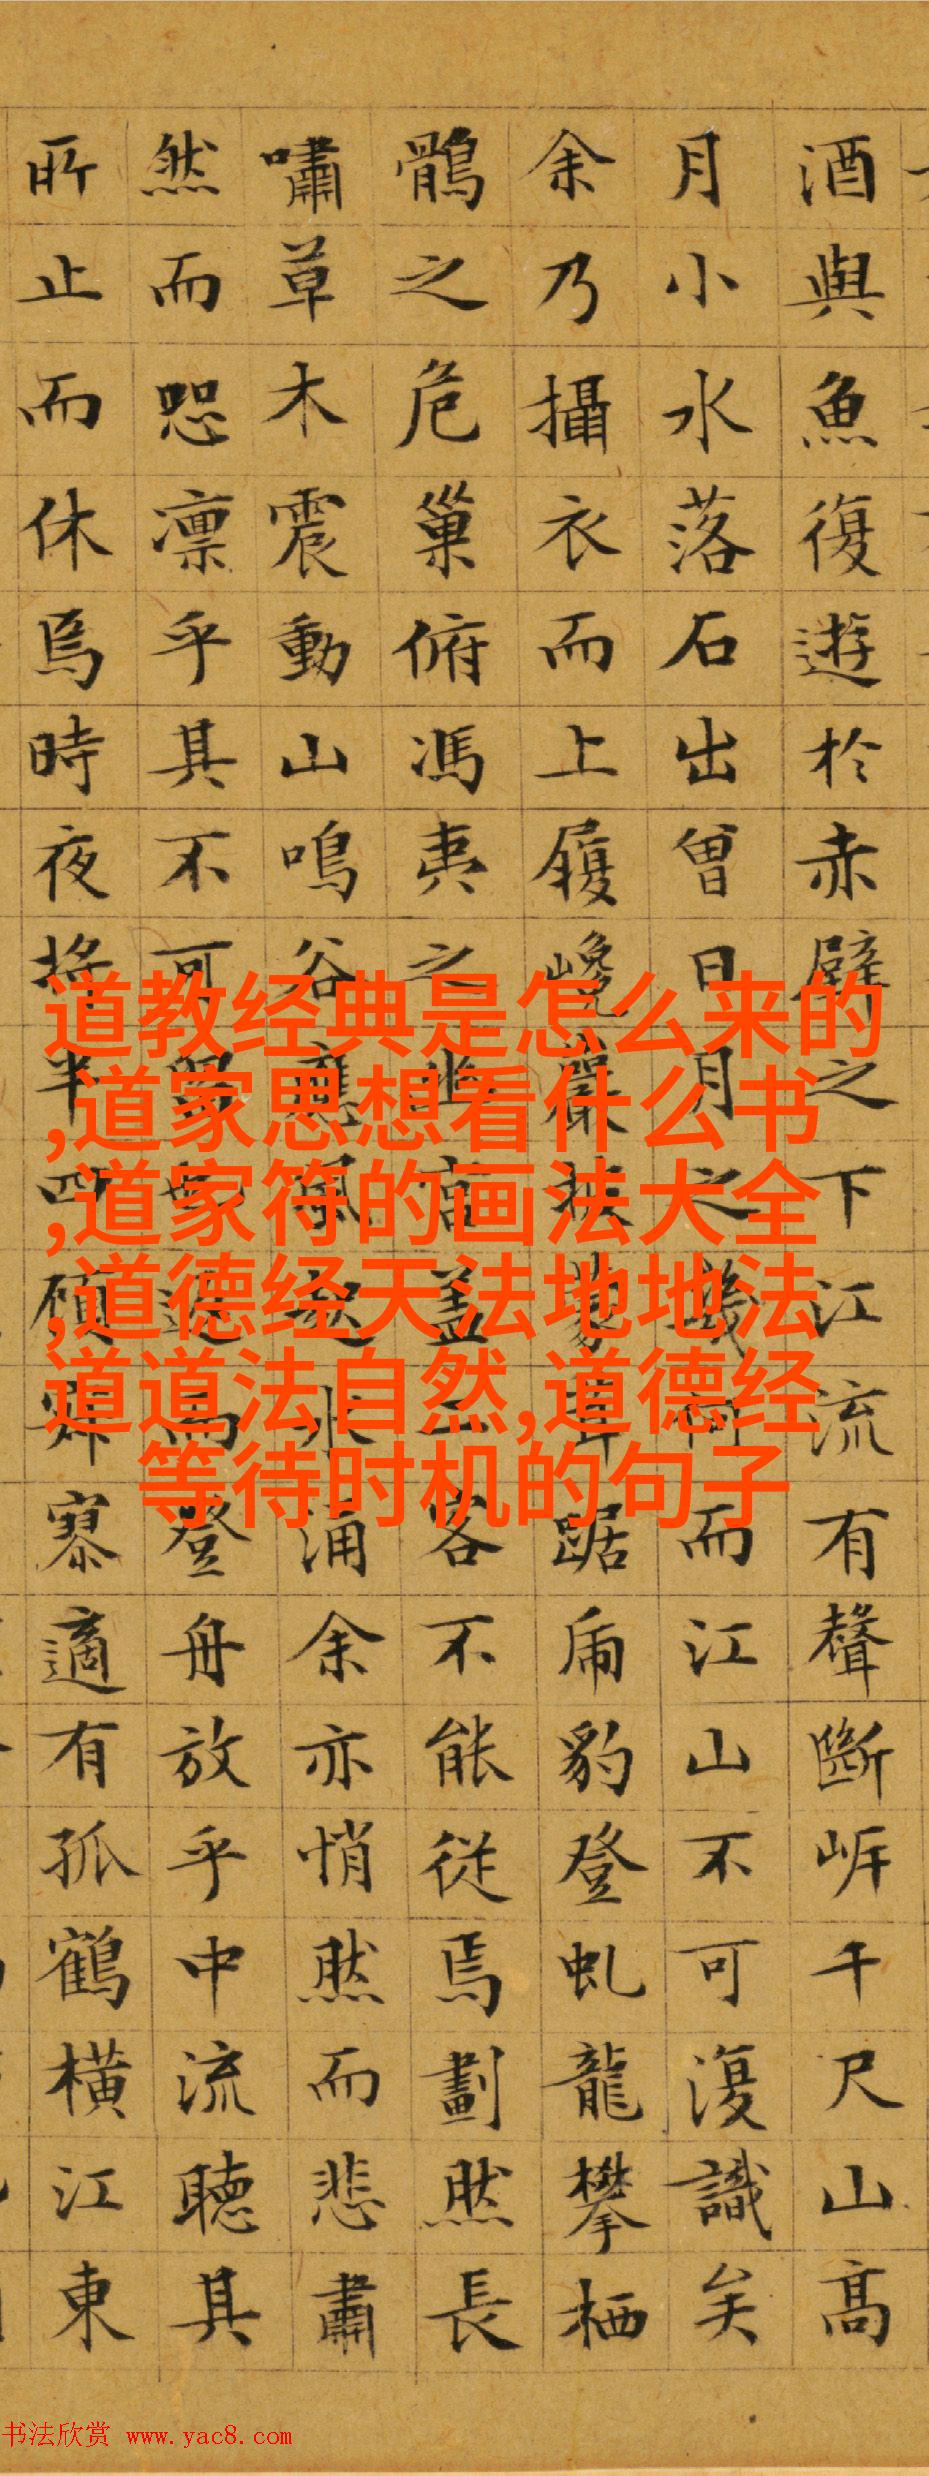 酒與魚復遊於赤壁之下江流有聲斷岸千尺山高
月小水落石出曾日月之幾何而江山不可復識矣
余乃攝衣而上履巉巖披蒙茸踞虎豹登虬龍攀栖
鶻之危巢俯馮夷之幽宮蓋二客不能從焉劃然長
嘯草木震動山鳴谷應風起水涌余亦悄然而悲肅
然而恐凛乎其不可留也返而登舟放乎中流聽其
所止而休焉時夜將半四顧寂寥適有孤鶴橫江東
道教经典是怎么来的
,道家思想看什么书
,道家符的画法大全
,道德经天法地地法
道道法自然,道德经
等待时机的句子
书法欣赏 www.yac8.com